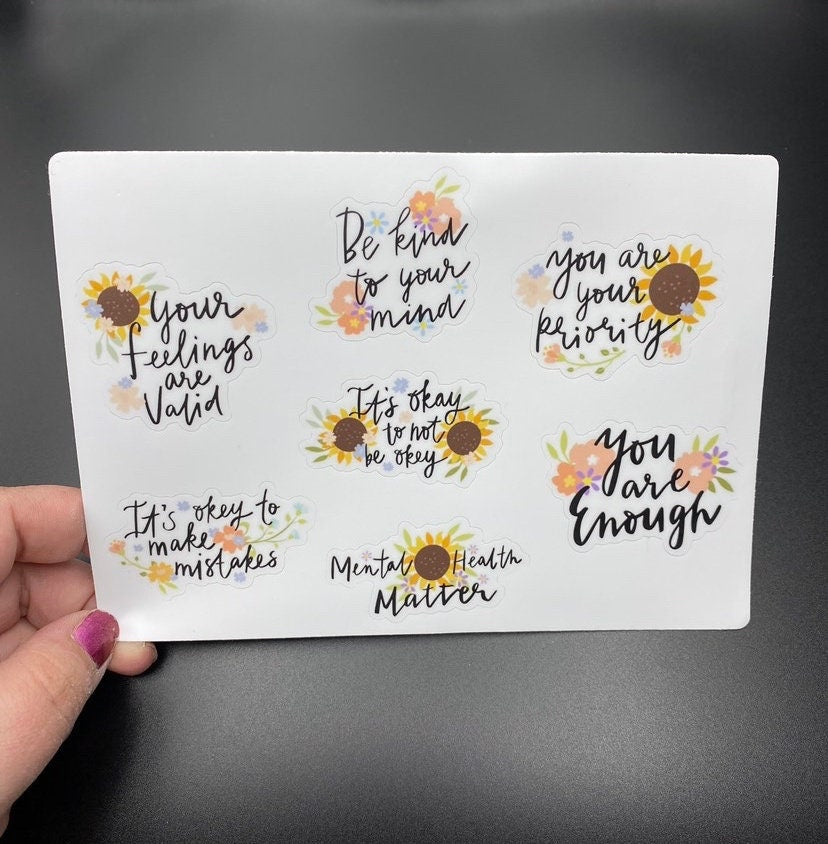 Your
feelings
are
Valid
Be kind
to your
mind
You are
your
priority
It's okay
to not
be okey
You
are
Enough
It's okey to
make
mistakes
Mental Health
Matter